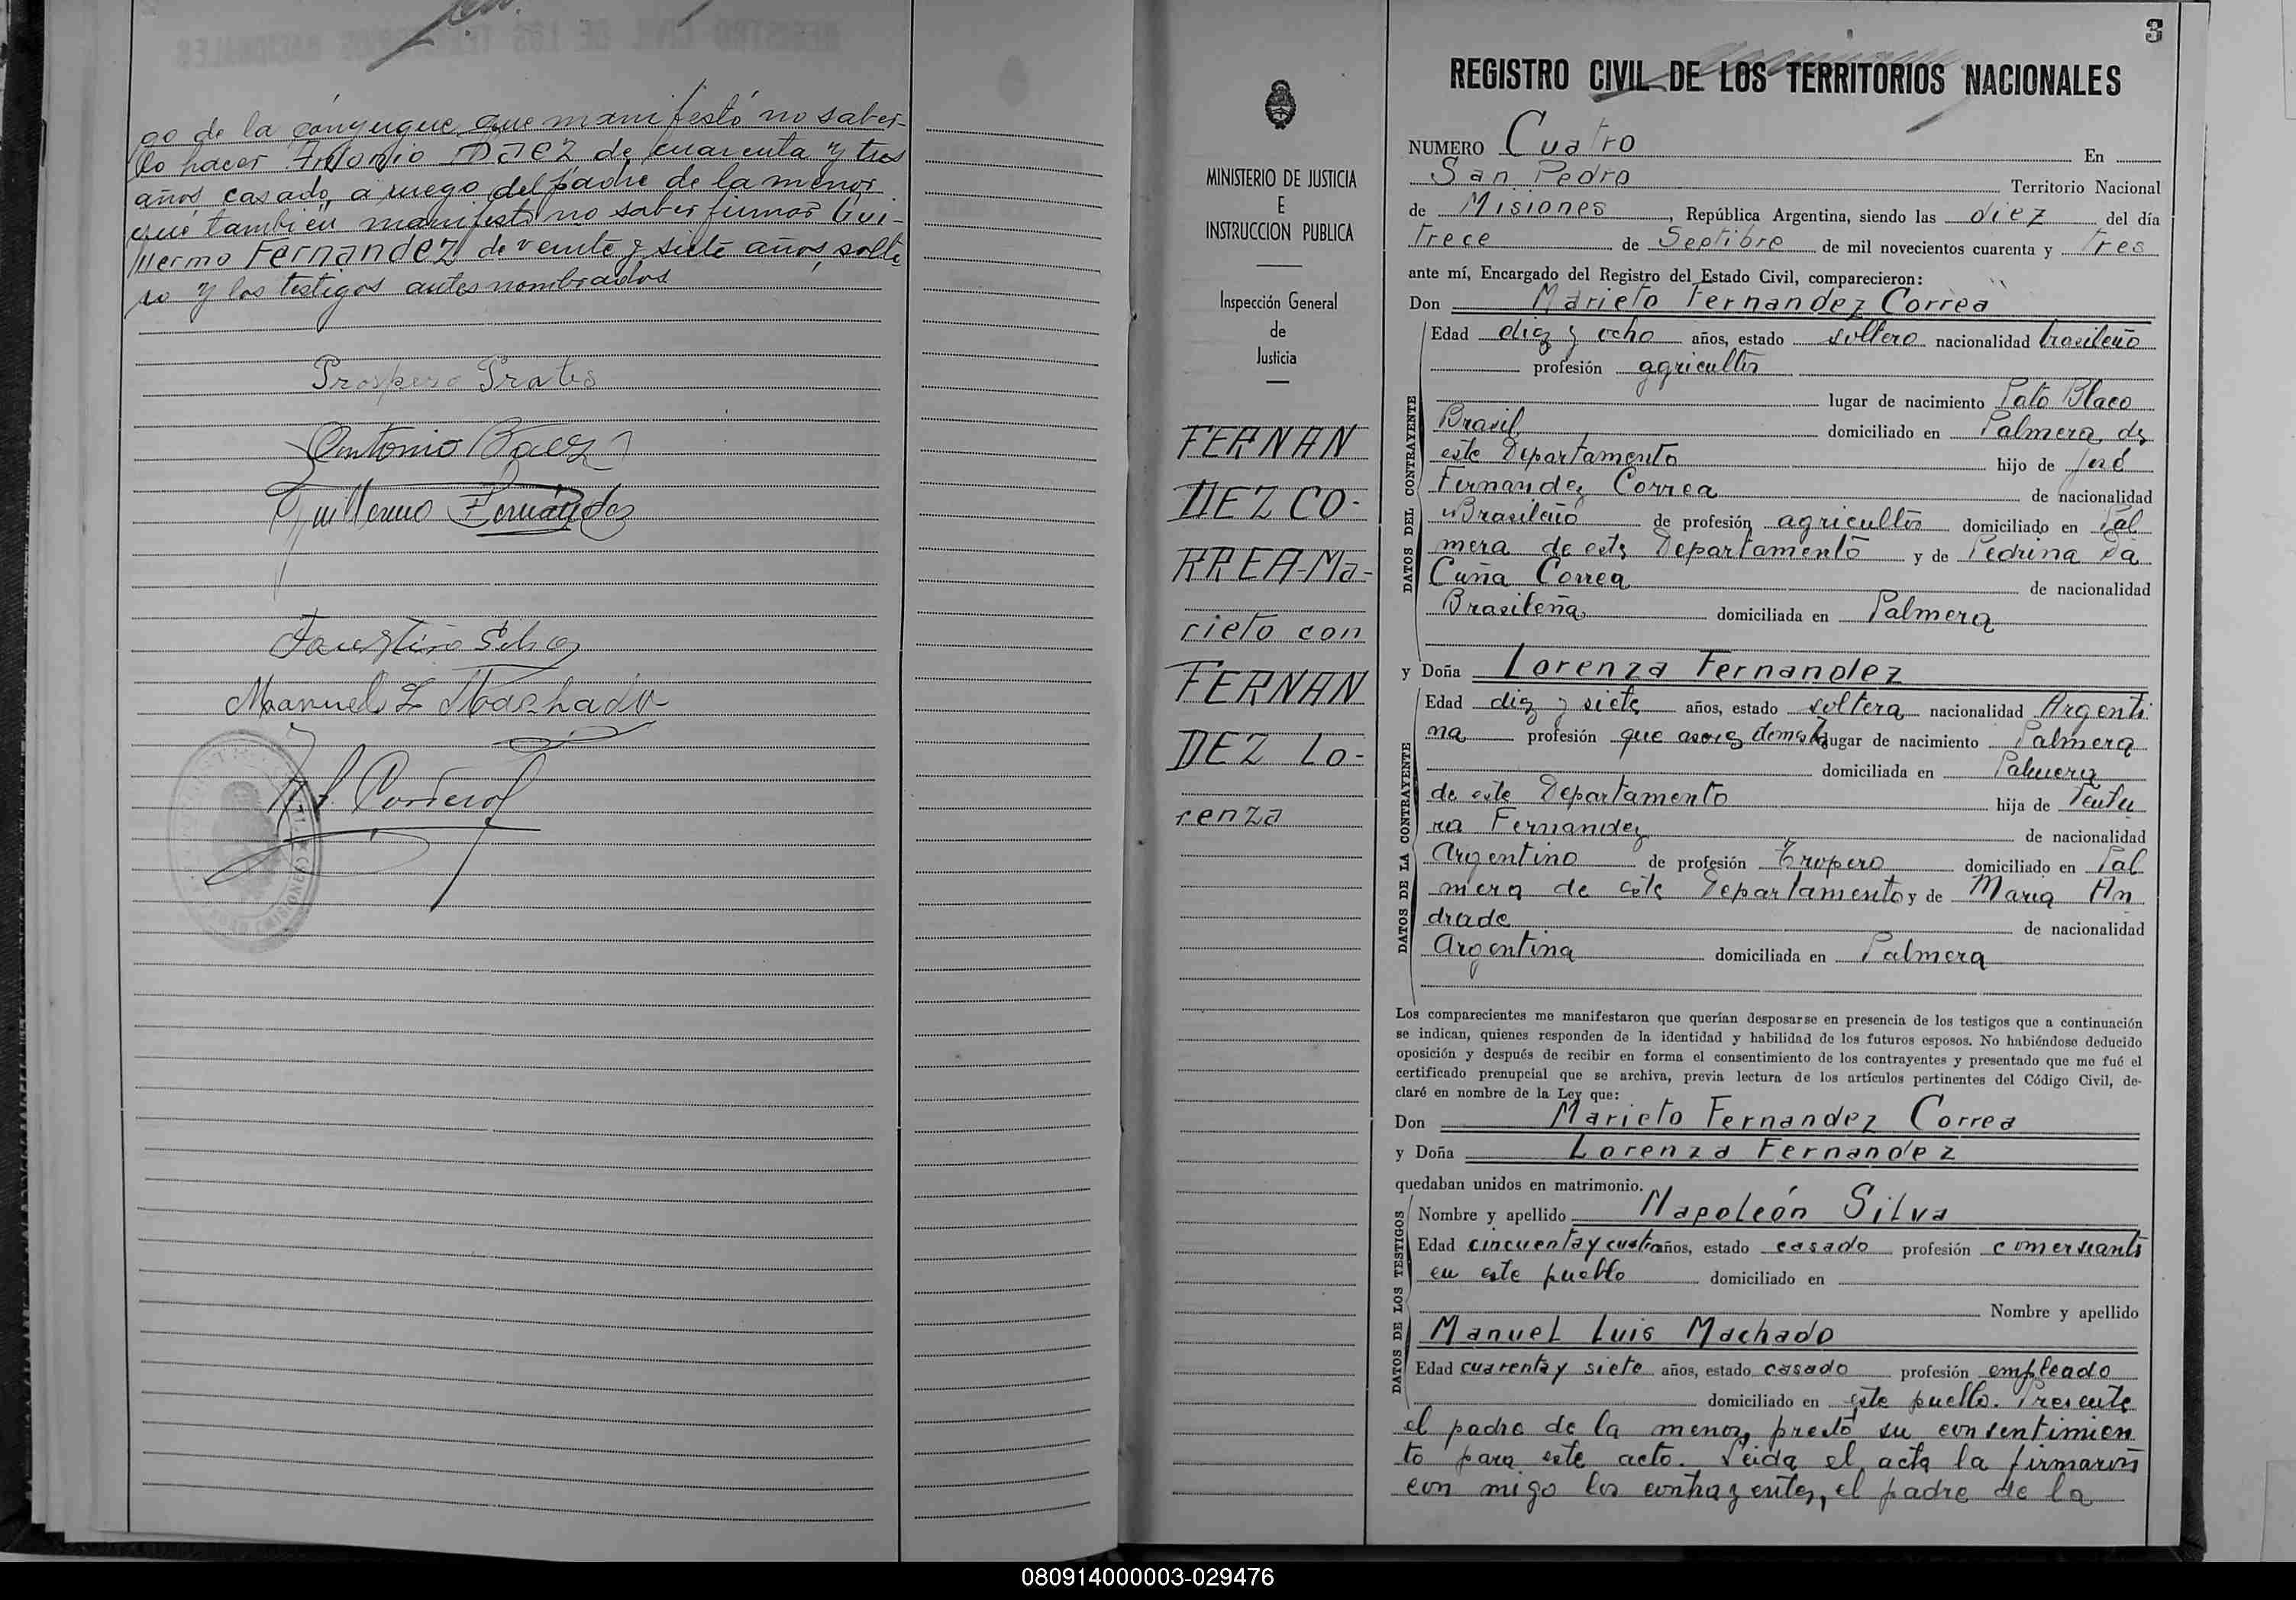 go de la cónyugue, que manifestó no saber-
lo hacer Antonio Báez de cuarenta y tres
años casado, a ruego del padre de la menor
que también manifestó no saber firmar Gui-
llermo Fernandez de veinte y siete años, solte
ro y los testigos antes nombrados
Prospero Prates
Antonio Baez
Guillermo Fernández
Faustino Silva
Manuel L Machado
MISIONES
3
REGISTRO CIVIL DE LOS TERRITORIOS NACIONALES
MINISTERIO DE JUSTICIA
E
INSTRUCCION PUBLICA
Inspección General
de
Justicia
FERNAN
DEZ CO-
RREA-Ma-
rieto con
FERNAN
DEZ Lo-
renza
NUMERO Cuatro En
San Pedro Territorio Nacional
de Misiones, República Argentina, siendo las diez del día
trece de Septibre de mil novecientos cuarenta y tres
ante mí, Encargado del Registro del Estado Civil, comparecieron:
Don Marieto Fernandez Correa
DATOS DEL CONTRAYENTE
Edad diez y ocho años, estado soltero nacionalidad brasileño
profesión agricultor
lugar de nacimiento Pato Blaco
Brasil, domiciliado en Palmera, de
este Departamento hijo de José
Fernandez Correa de nacionalidad
Brasileño de profesión agricultor domiciliado en Pal
mera de este Departamento y de Pedrina Da
Cuña Correa de nacionalidad
Brasileña, domiciliada en Palmera
y Doña Lorenza Fernandez
DATOS DE LA CONTRAYENTE
Edad diez y siete años, estado soltera nacionalidad Argenti
na profesión que aseres domest lugar de nacimiento Palmera
domiciliada en Palmera
de este Departamento hija de Ventu
ra Fernandez de nacionalidad
Argentino de profesión Tropero domiciliado en Pal
mera de este Departamento y de Maria An
drade de nacionalidad
Argentina domiciliada en Palmera
Los comparecientes me manifestaron que querían desposarse en presencia de los testigos que a continuación
se indican, quienes responden de la identidad y habilidad de los futuros esposos. No habiéndose deducido
oposición y después de recibir en forma el consentimiento de los contrayentes y presentado que me fué el
certificado prenupcial que se archiva, previa lectura de los artículos pertinentes del Código Civil, de-
claré en nombre de la Ley que:
Don Marieto Fernandez Correa
y Doña Lorenza Fernandez
quedaban unidos en matrimonio.
DATOS DE LOS TESTIGOS
Nombre y apellido Napoleón Silva
Edad cincuenta y cuatro años, estado casado profesión comersiante
en este pueblo domiciliado en
Nombre y apellido
Manuel Luis Machado
Edad cuarenta y siete años, estado casado profesión empleado
domiciliado en este pueblo. Presente
el padre de la menor, prestó su consentimien
to para este acto. Leida el acta la firmaron
con migo los contrayentes, el padre de la
080914000003-029476